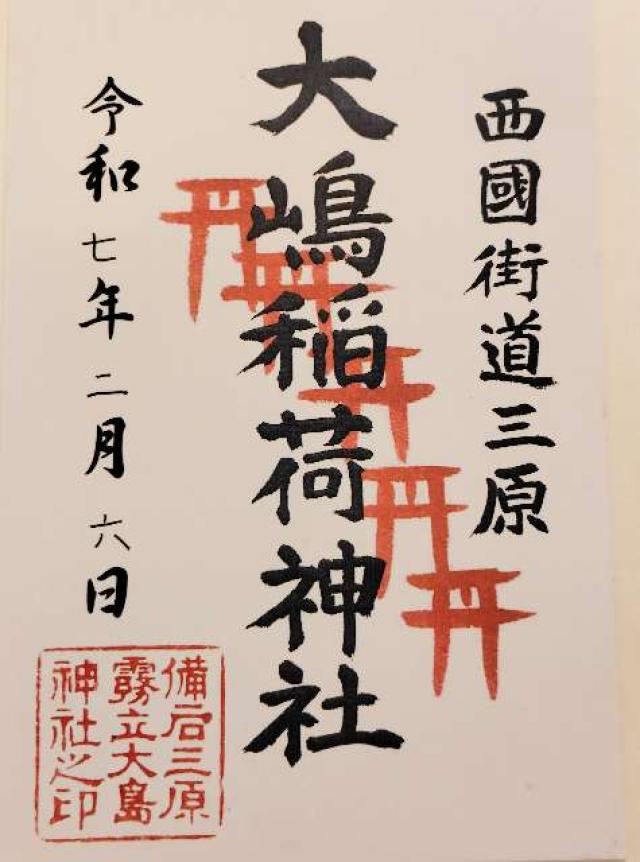 西國街道三原
大嶋稲荷神社
令和七年二月六日
備后三原
霧立大島
神社之印